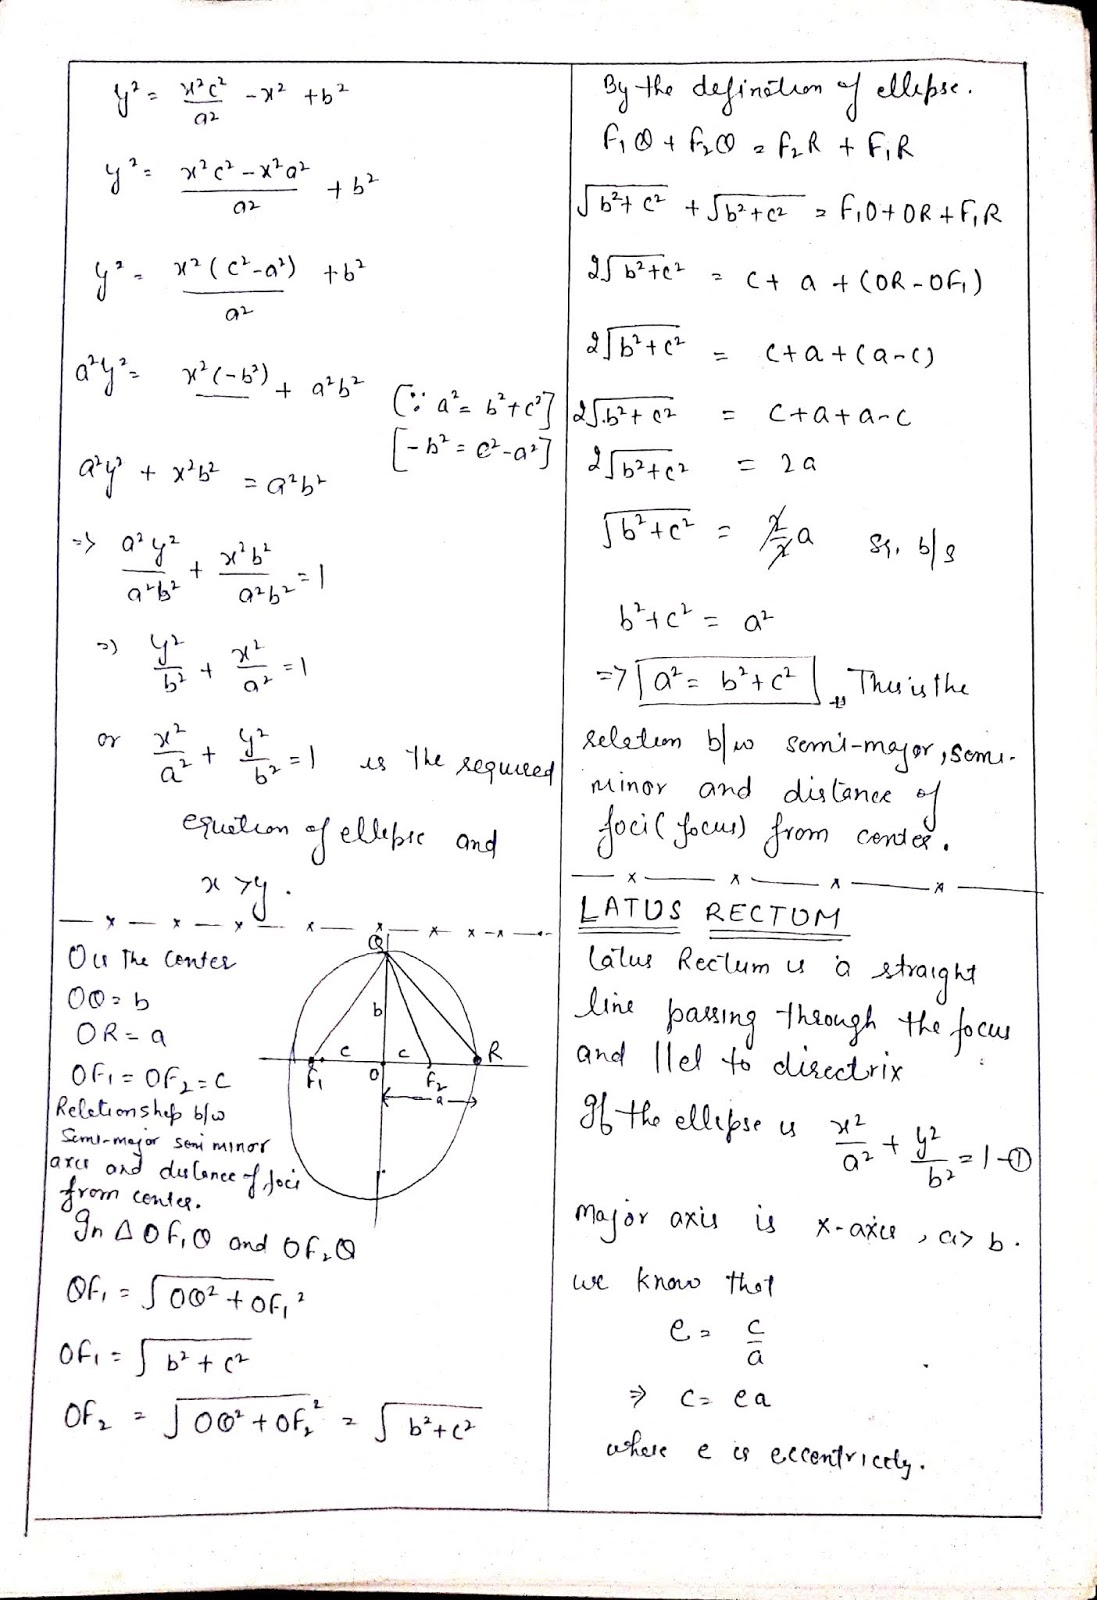 y² = x²c²/a² - x² + b²
y² = (x²c² - x²a²)/a² + b²
y² = x²(c²-a²)/a² + b²
a²y² = x²(-b²) + a²b² [∵ a² = b²+c²]
[-b² = c²-a²]
a²y² + x²b² = a²b²
=> a²y²/a²b² + x²b²/a²b² = 1
=) y²/b² + x²/a² = 1
or x²/a² + y²/b² = 1 is the required
equation of ellipse and
x > y.
O is the center
OQ = b
OR = a
OF₁ = OF₂ = C
Relationship b/w
Semi-major semi minor
axes and distance of foci
from center.
Q
b
c c
F₁ O F₂ R
a
In Δ OF₁Q and OF₂Q
QF₁ = √OQ² + OF₁²
OF₁ = √b² + c²
OF₂ = √OQ² + OF₂² = √b²+c²
By the definition of ellipse.
F₁Q + F₂Q = F₂R + F₁R
√b²+c² + √b²+c² = F₁O + OR + F₁R
2√b²+c² = c + a + (OR - OF₁)
2√b²+c² = c+a+(a-c)
2√b²+c² = c+a+a-c
2√b²+c² = 2a
√b²+c² = 2/2 a Sq. b/s
b²+c² = a²
=> a² = b²+c² This is the
relation b/w semi-major, semi-
minor and distance of
foci (focus) from center.
LATUS RECTUM
Latus Rectum is a straight
line passing through the focus
and llel to directrix
If the ellipse is x²/a² + y²/b² = 1 -①
Major axis is x-axis, a > b.
we know that
e = c/a
⇒ c = ea
where e is eccentricity.